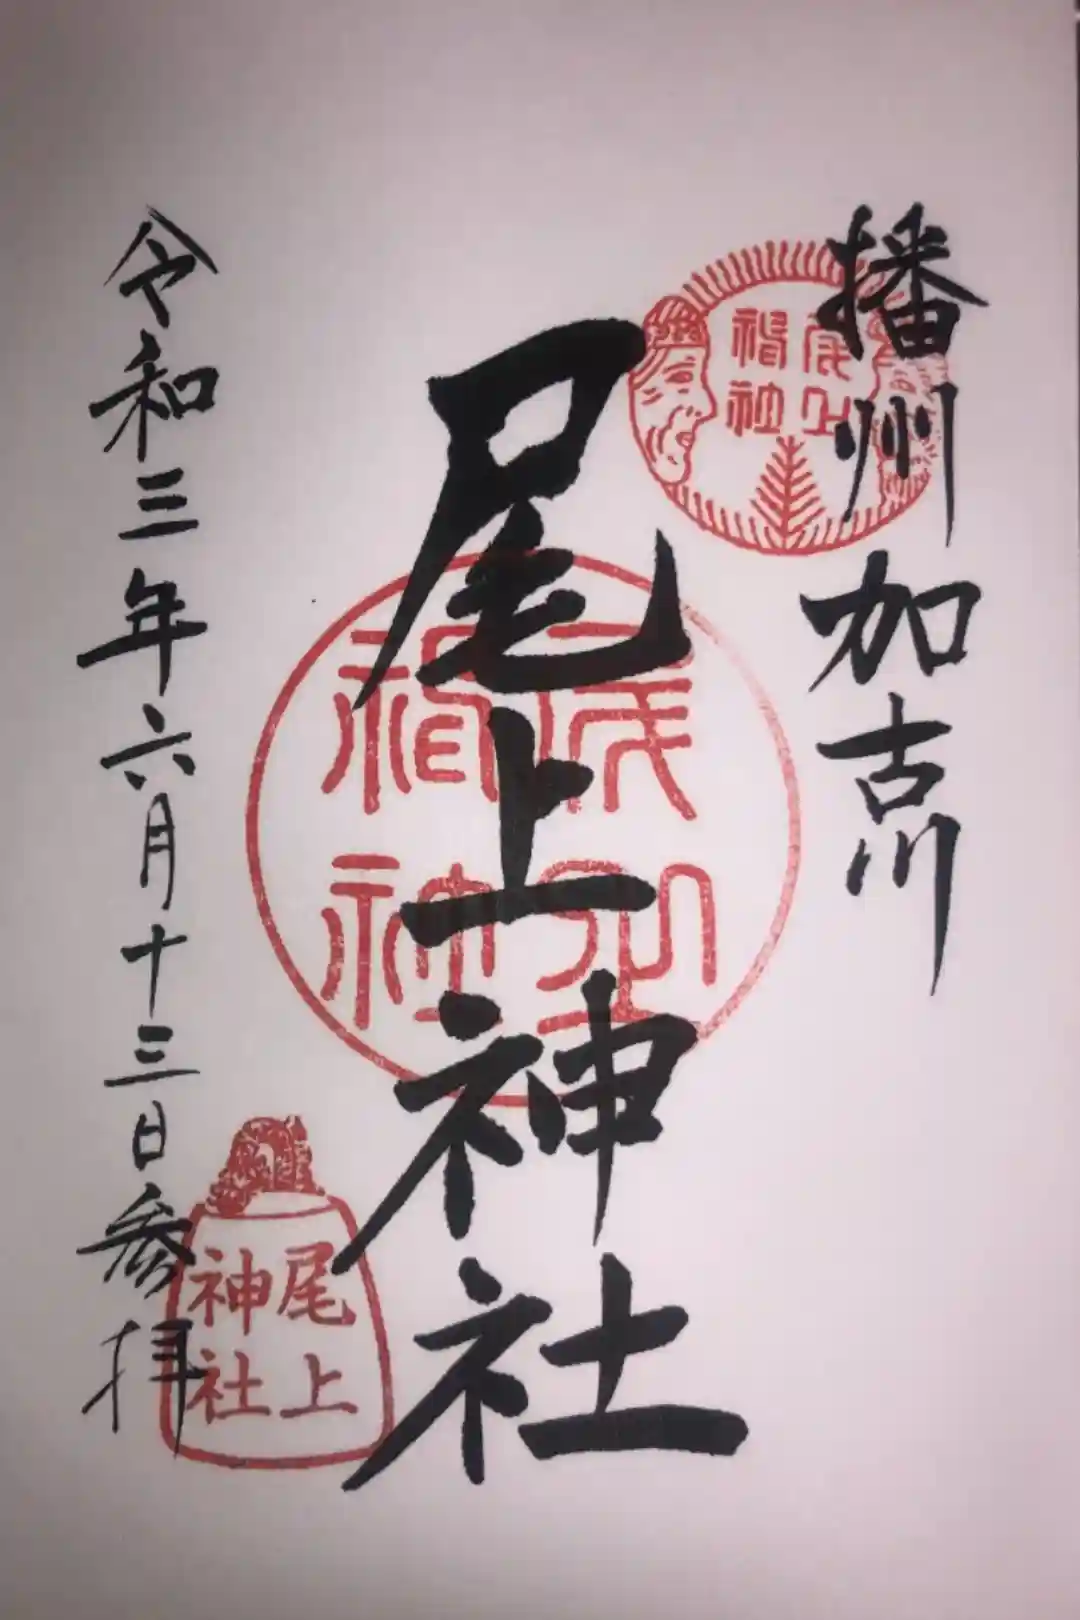 播州加古川
尾上
神社
尾上神社
尾上
神社
尾上
神社
令和三年六月十三日参拝